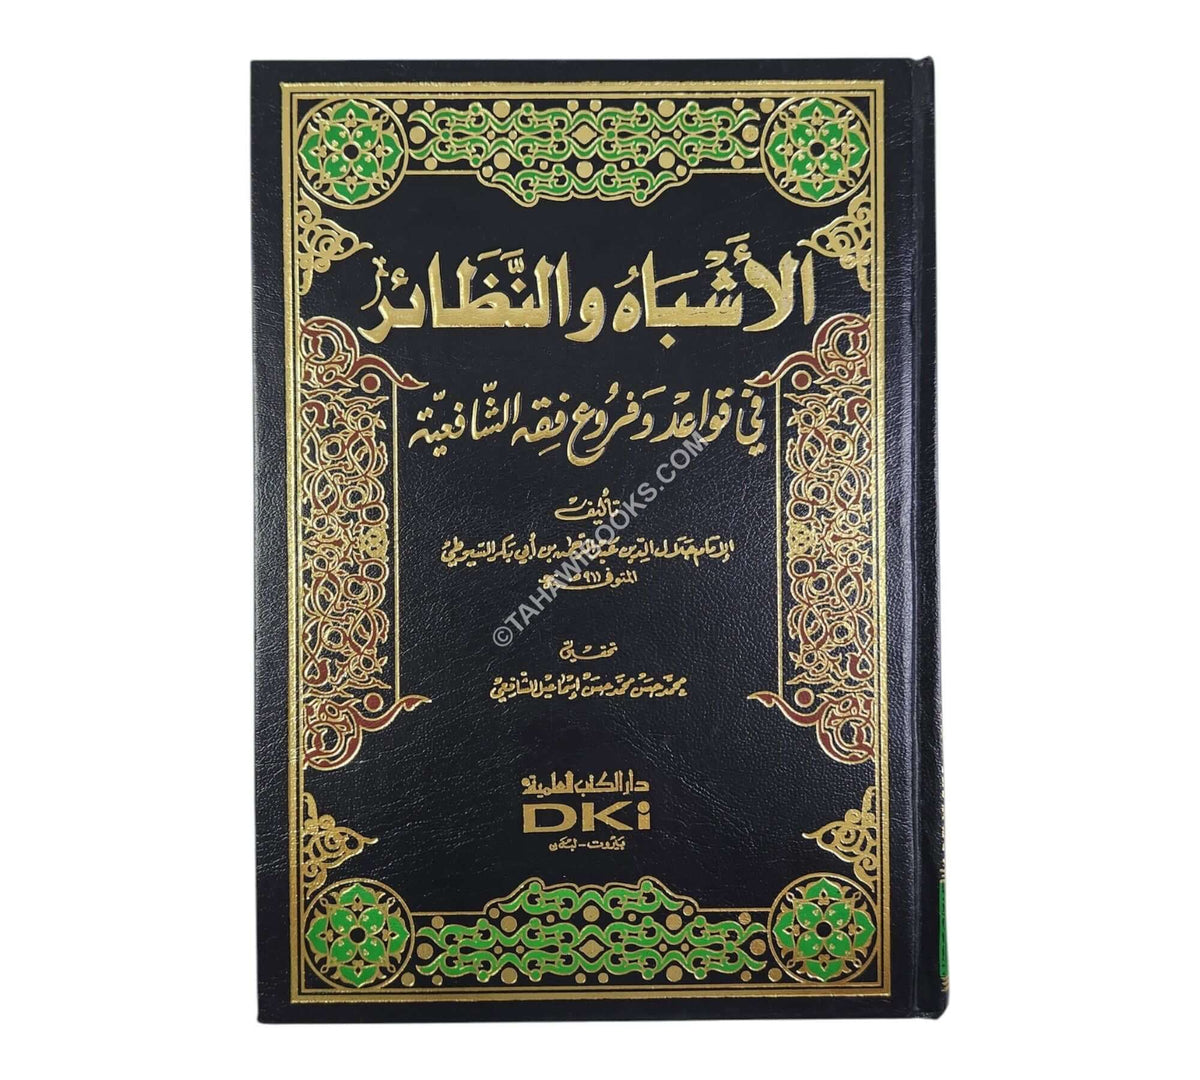 الأَشْبَاهُ والنَّظَائر
في قواعد وَفروع فِقه الشَّافعيّة
تأليف
الإمام جلال الدين عبد الرحمن بن أبي بكر السيوطي
المتوفى ٩١١ هـ
تحقيق
محمد حسن محمد حسن إسماعيل الشافعي
دار الكتب العلمية
DKi
بيروت - لبنان
©TAHAWIBOOKS.COM